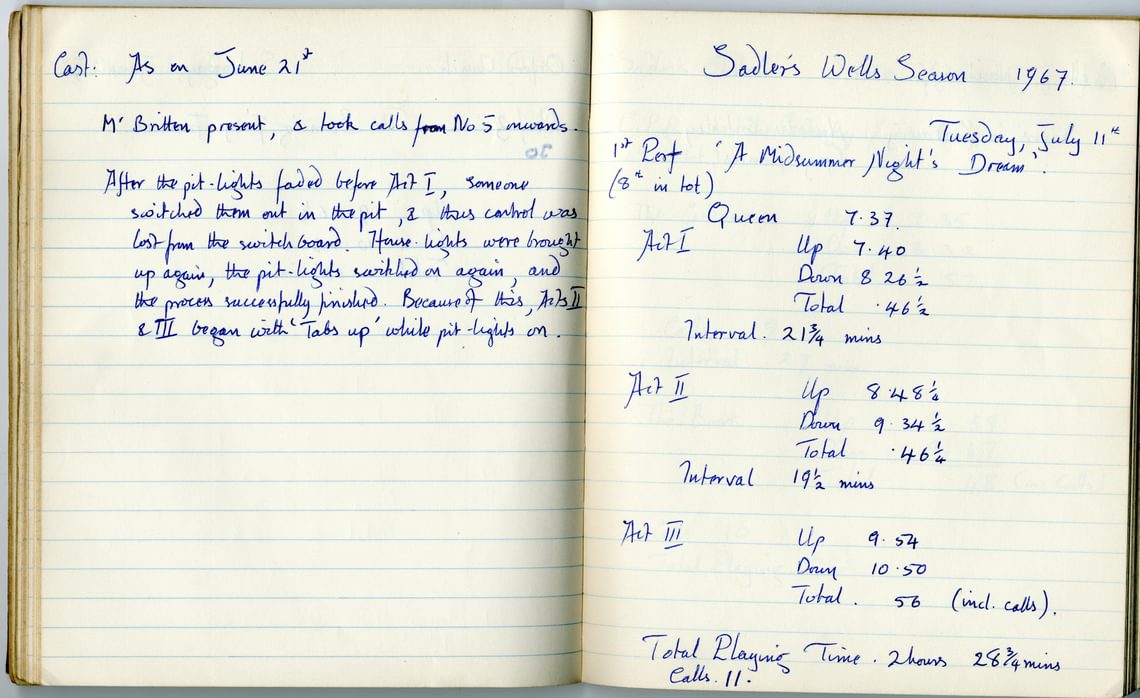 Cast: As on June 21st
Mr Britten present, & took calls from No 5 onwards.
After the pit-lights faded before Act I, someone
switched them out in the pit, & thus control was
lost from the switchboard. House-lights were brought
up again, the pit-lights switched on again, and
the process successfully finished. Because of this, Acts II
& III began with 'Tabs up' while pit-lights on.
Sadler's Wells Season 1967.
Tuesday, July 11th
1st Perf 'A Midsummer Night's Dream'.
(8th in tot)
Queen 7.37.
Act I Up 7.40
Down 8 26½
Total .46½
Interval. 21¾ mins
Act II Up 8.48¼
Down 9.34½
Total .46¼
Interval 19½ mins
Act III Up 9.54
Down 10.50
Total. 56 (incl. calls).
Total Playing Time. 2hours 28¾ mins
Calls. 11.